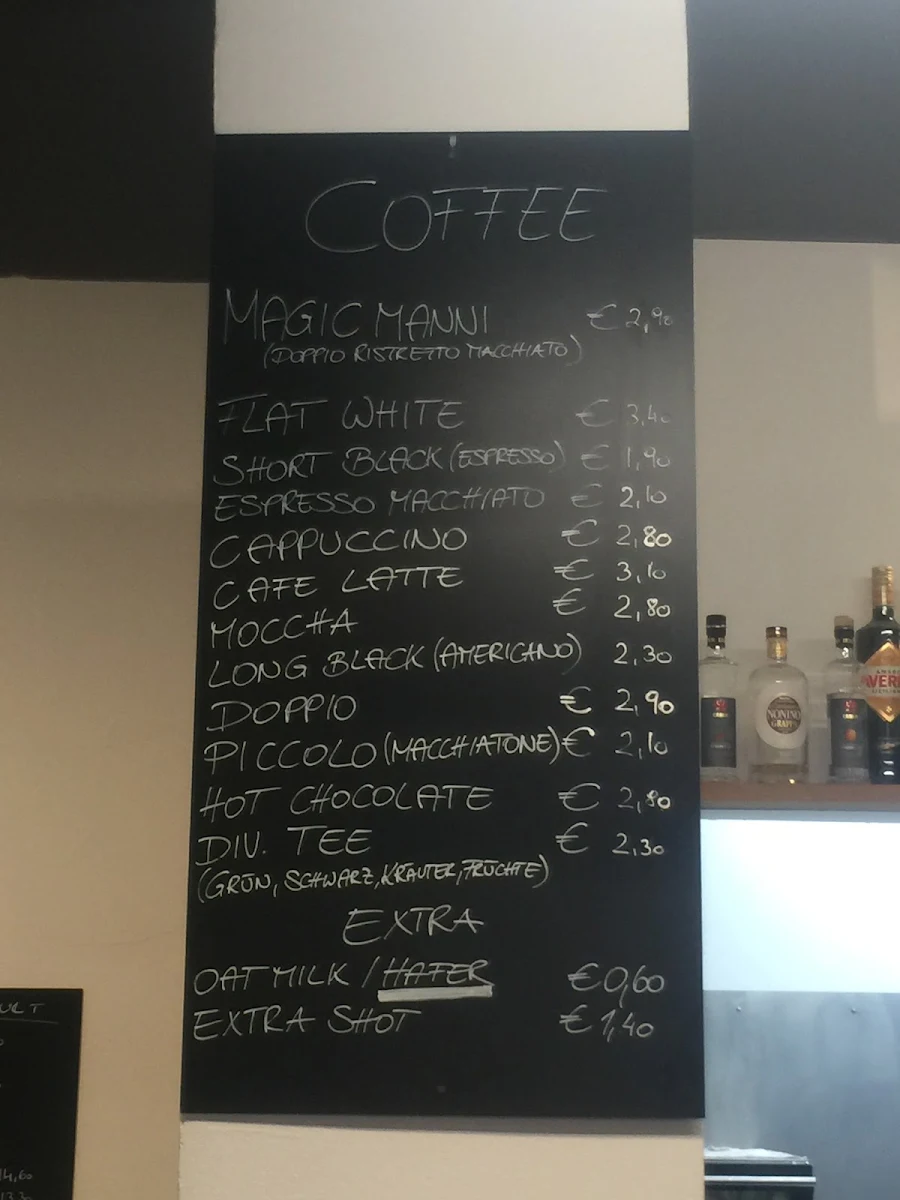 COFFEE
MAGIC MANNI € 2,90
(DOPPIO RISTRETTO MACCHIATO)
FLAT WHITE € 3,40
SHORT BLACK (ESPRESSO) € 1,90
ESPRESSO MACCHIATO € 2,10
CAPPUCCINO € 2,80
CAFE LATTE € 3,10
MOCCHA € 2,80
LONG BLACK (AMERICANO) 2,30
DOPPIO € 2,90
PICCOLO (MACCHIATONE) € 2,10
HOT CHOCOLATE € 2,80
DIV. TEE € 2,30
(GRÜN, SCHWARZ, KRÄUTER, FRÜCHTE)
EXTRA
OAT MILK / HAFER € 0,60
EXTRA SHOT € 1,40
NONINO
GRAPPA